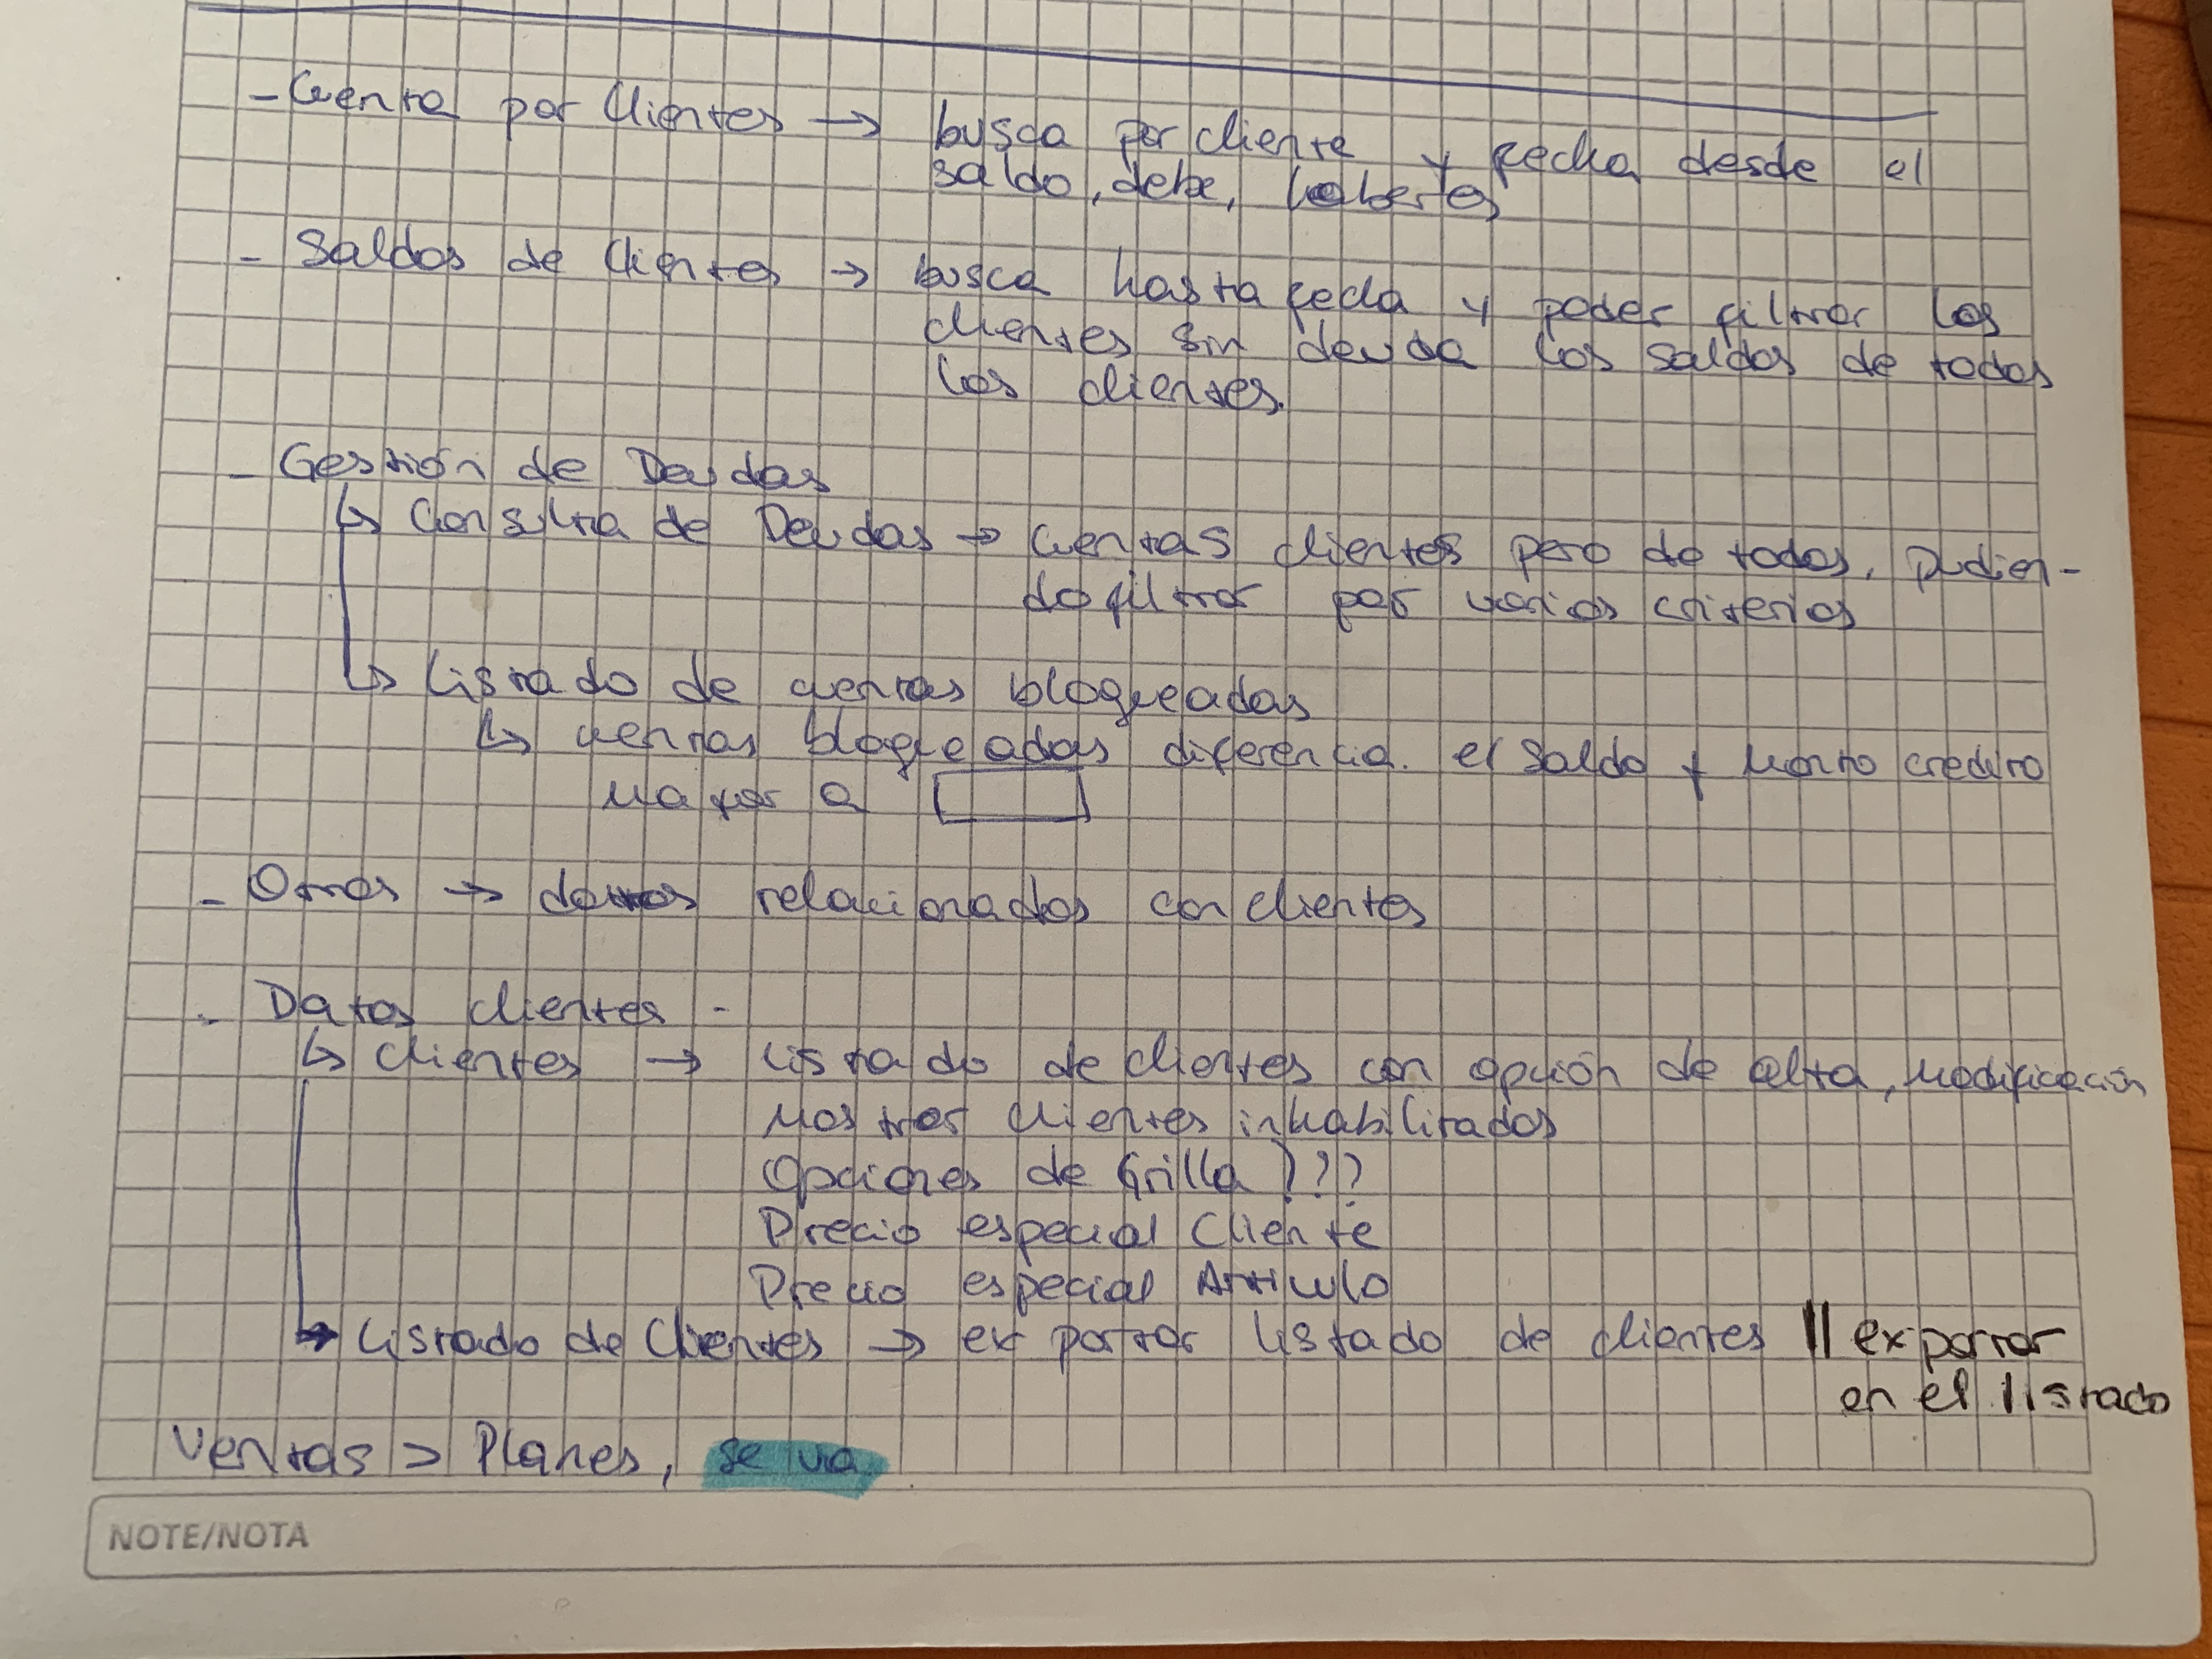 - Cuenta por Clientes → busca por cliente y fecha desde el
saldo, debe, haberes
- Saldos de Clientes → busca hasta fecha y poder filtrar los
clientes sin deuda los saldos de todos
los clientes.
- Gestión de Deudas
↳ Consulta de Deudas → cuentas clientes pero de todos, pudien-
do filtrar por varios criterios
↳ Listado de cuentas bloqueadas
↳ cuentas bloqueadas diferencia el saldo y monto credito
mayor a
- Otros → datos relacionados con clientes
- Datos clientes -
↳ Clientes → Listado de clientes con opción de alta, modificación
Mostrar clientes inhabilitados
Opciones de Grilla ???
Precio especial Cliente
Precio especial Articulo
→ Listado de Clientes → exportar listado de clientes || exportar
en el listado
Ventas > Planes, se va
NOTE/NOTA